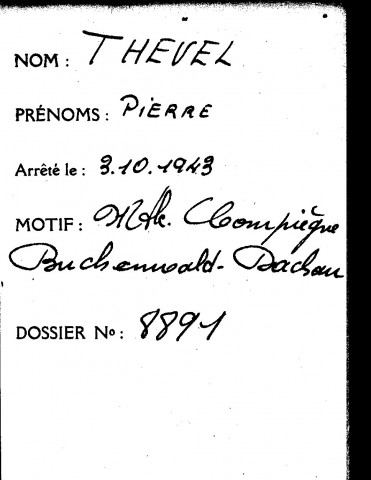 NOM : THEVEL
PRÉNOMS : PIERRE
Arrêté le : 3.10.1943
MOTIF : Compiègne
Buchenwald - Dachau
DOSSIER No : 8891